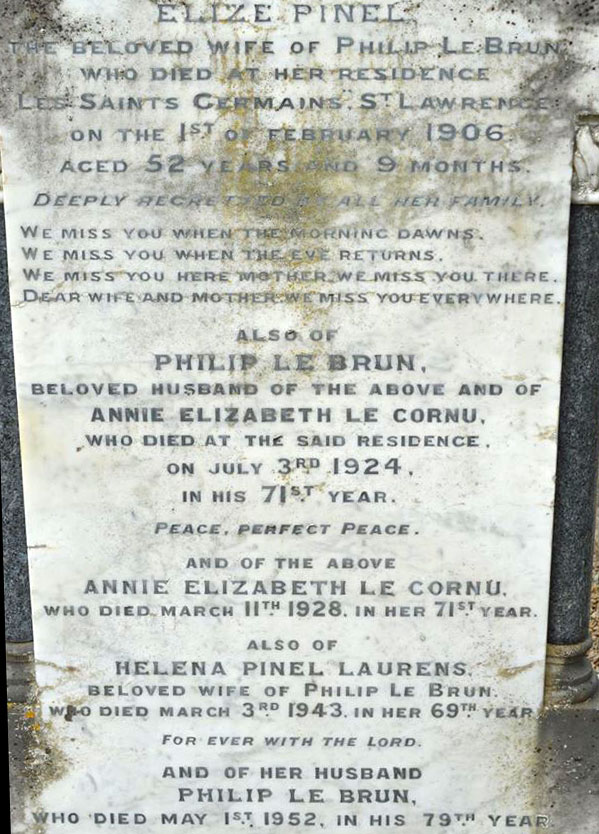 ELIZE PINEL,
THE BELOVED WIFE OF PHILIP LE BRUN,
WHO DIED AT HER RESIDENCE
LES SAINTS GERMAINS, ST LAWRENCE,
ON THE 1ST OF FEBRUARY 1906
AGED 52 YEARS AND 9 MONTHS.
DEEPLY REGRETTED BY ALL HER FAMILY.
WE MISS YOU WHEN THE MORNING DAWNS.
WE MISS YOU WHEN THE EVE RETURNS.
WE MISS YOU HERE MOTHER, WE MISS YOU THERE.
DEAR WIFE AND MOTHER, WE MISS YOU EVERYWHERE.
ALSO OF
PHILIP LE BRUN,
BELOVED HUSBAND OF THE ABOVE AND OF
ANNIE ELIZABETH LE CORNU,
WHO DIED AT THE SAID RESIDENCE,
ON JULY 3RD 1924,
IN HIS 71ST YEAR.
PEACE, PERFECT PEACE.
AND OF THE ABOVE
ANNIE ELIZABETH LE CORNU,
WHO DIED MARCH 11TH 1928, IN HER 71ST YEAR.
ALSO OF
HELENA PINEL LAURENS,
BELOVED WIFE OF PHILIP LE BRUN.
WHO DIED MARCH 3RD 1943, IN HER 69TH YEAR
FOR EVER WITH THE LORD.
AND OF HER HUSBAND
PHILIP LE BRUN,
WHO DIED MAY 1ST 1952, IN HIS 79TH YEAR